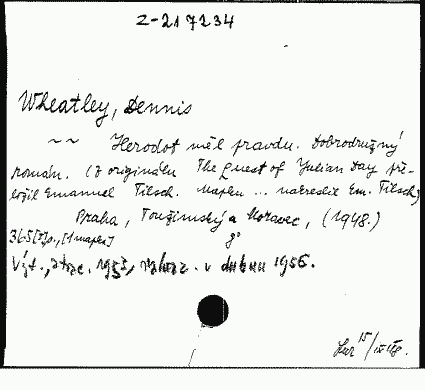 Z-217234
Wheatley, Dennis
~~ Herodot měl pravdu. Dobrodružný
román. (Z originálu The Quest of Julian Day pře-
ložil Emanuel Tilsch. Mapku ... nakreslil Em. Tilsch)
Praha, Toužimský a Moravec, (1948.)
365[3]s., [1 mapka] 8°
Výt., ztrac. 1953, v dubnu 1956.
15/